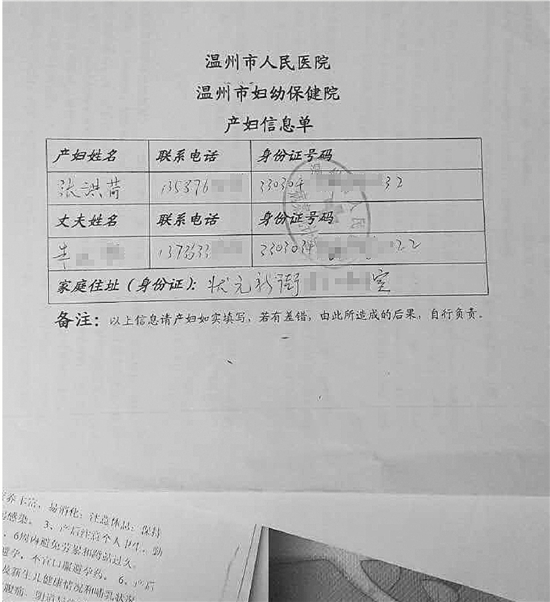 温州市人民医院
温州市妇幼保健院
产妇信息单
产妇姓名 联系电话 身份证号码
张洪茜 135876 330304 32
丈夫姓名 联系电话 身份证号码
137353 330304 22
家庭住址（身份证）：状元新街 室
备注：以上信息请产妇如实填写，若有差错，由此所造成的后果，自行负责。
养丰富，易消化；注意休息；保持
感染。3、产后注意个人卫生，勤
6周内避免劳累和蹲站过久。
避孕，不宜口服避孕药。6、产后
及新生儿健康情况和哺乳状况